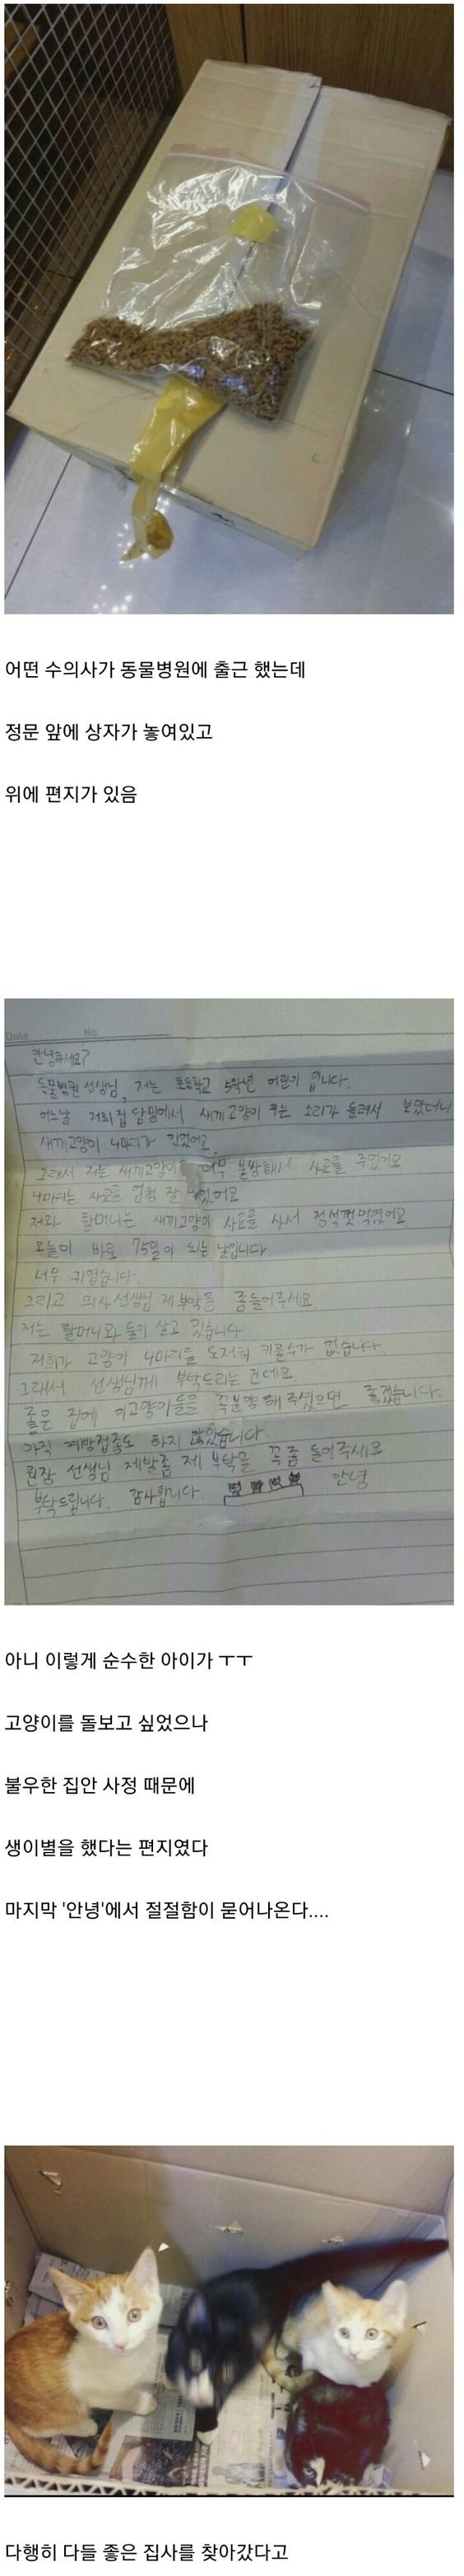 어떤 수의사가 동물병원에 출근 했는데
정문 앞에 상자가 놓여있고
위에 편지가 있음
Date No.
안녕하세요?
동물병원 선생님, 저는 초등학교 5학년 어린이 입니다.
어느날 저희 집 담밑에서 새끼고양이 우는 소리가 들려서 보았더니
새끼고양이 4마리가 있었어요.
그래서 저는 새끼고양이 너무 불쌍해서 사료를 주었어요
4마리는 사료를 엄청 잘 먹었어요
저와 할머니는 새끼고양이 사료를 사서 정성껏먹였어요
오늘이 바로 75일이 되는 날입니다.
너무 귀엽습니다.
그리고 의사선생님 제부탁을 좀들어주세요
저는 할머니와 둘이 살고 있습니다
저희가 고양이 4마리를 도저히 키울수가 없습니다
그래서 선생님께 부탁드리는 건데요
좋은 집에 이고양이들을 꼭분양해주셨으면 좋겠습니다.
아직 예방접종도 하지 않았습니다.
원장 선생님 제발좀 제 부탁을 꼭좀 들어주세요
부탁드립니다. 감사합니다. 안녕
아니 이렇게 순수한 아이가 ㅜㅜ
고양이를 돌보고 싶었으나
불우한 집안 사정 때문에
생이별을 했다는 편지였다
마지막 '안녕'에서 절절함이 묻어나온다....
다행히 다들 좋은 집사를 찾아갔다고